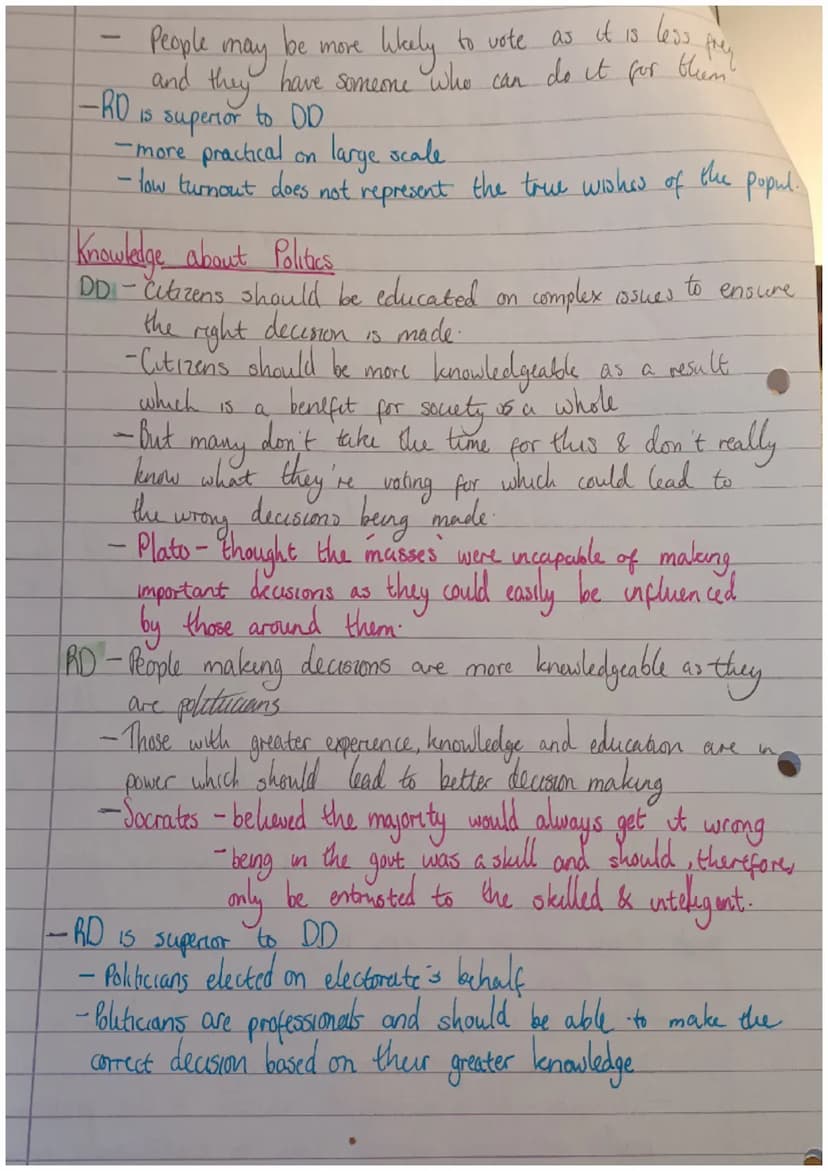 - People may be more likely to vote as it is less freq
and they have someone who can do it for them
- RD is superior to DD
- more practical on large scale
- low turnout does not represent the true wishes of the popul.
Knowledge about Politics
DD - Citizens should be educated on complex issues to ensure
the right decision is made.
- Citizens should be more knowledgeable as a result
which is a benefit for society as a whole
- But many don't take the time for this & don't really
know what they're voting for which could lead to
the wrong decisions being made.
- Plato - thought the 'masses' were incapable of making
important decisions as they could easily be influenced
by those around them.
RD - People making decisions are more knowledgeable as they
are politicians
- Those with greater experience, knowledge and education are in
power which should lead to better decision making
- Socrates - believed the majority would always get it wrong
- being in the govt was a skill and should, therefore,
only be entrusted to the skilled & inteligent.
- RD is superior to DD
- Politicians elected on electorate's behalf
- Politicians are professionals and should be able to make the
correct decision based on their greater knowledge